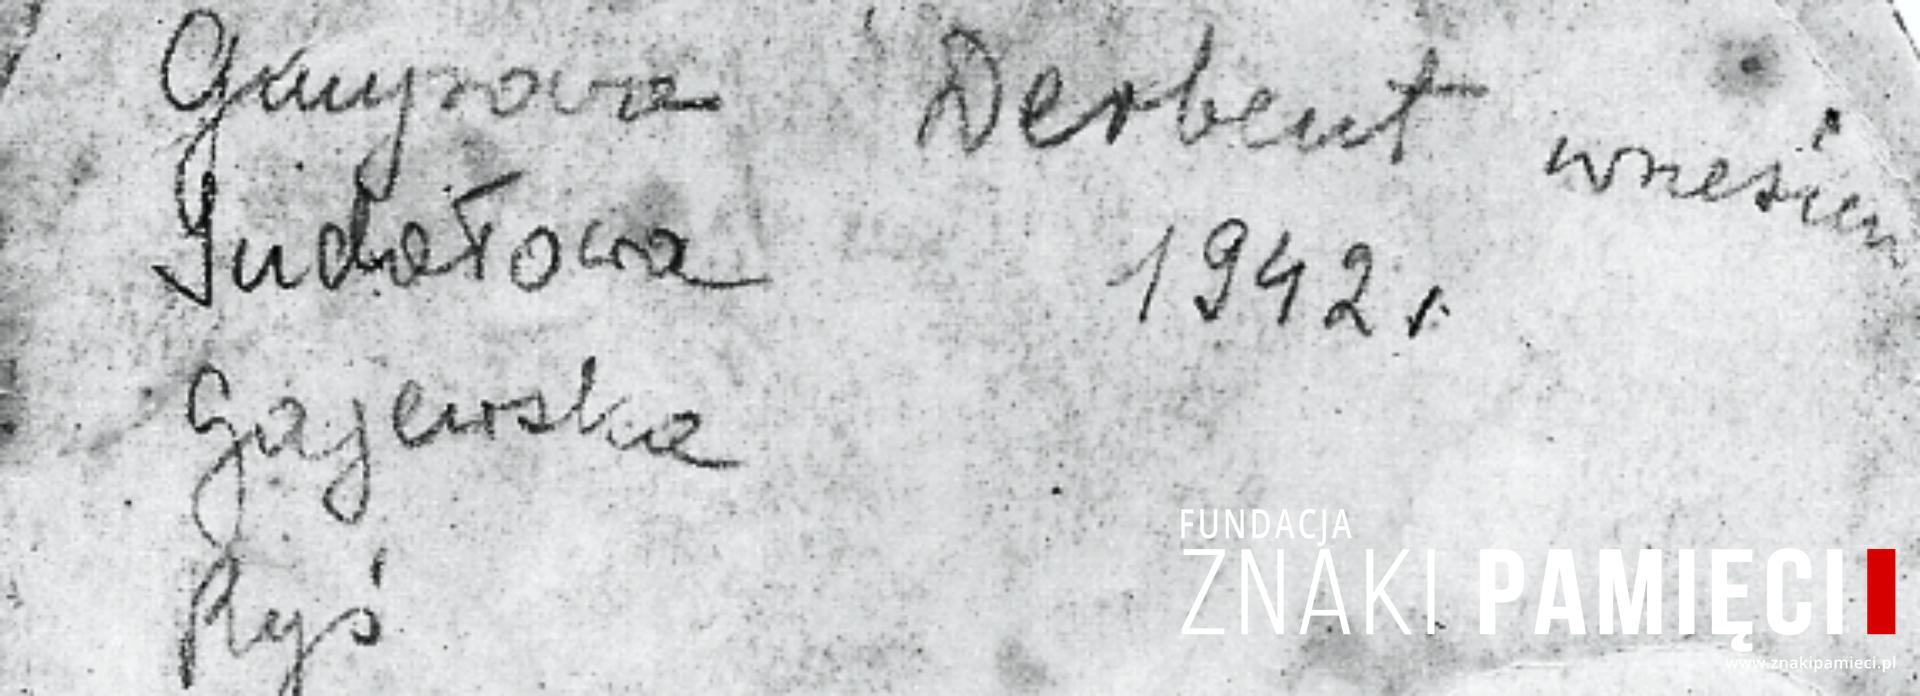 Derbent wrzesień
Judałowa 1942 r.
Gajewska
Ryś
FUNDACJA
ZNAKI PAMIĘCI
www.znakipamieci.pl